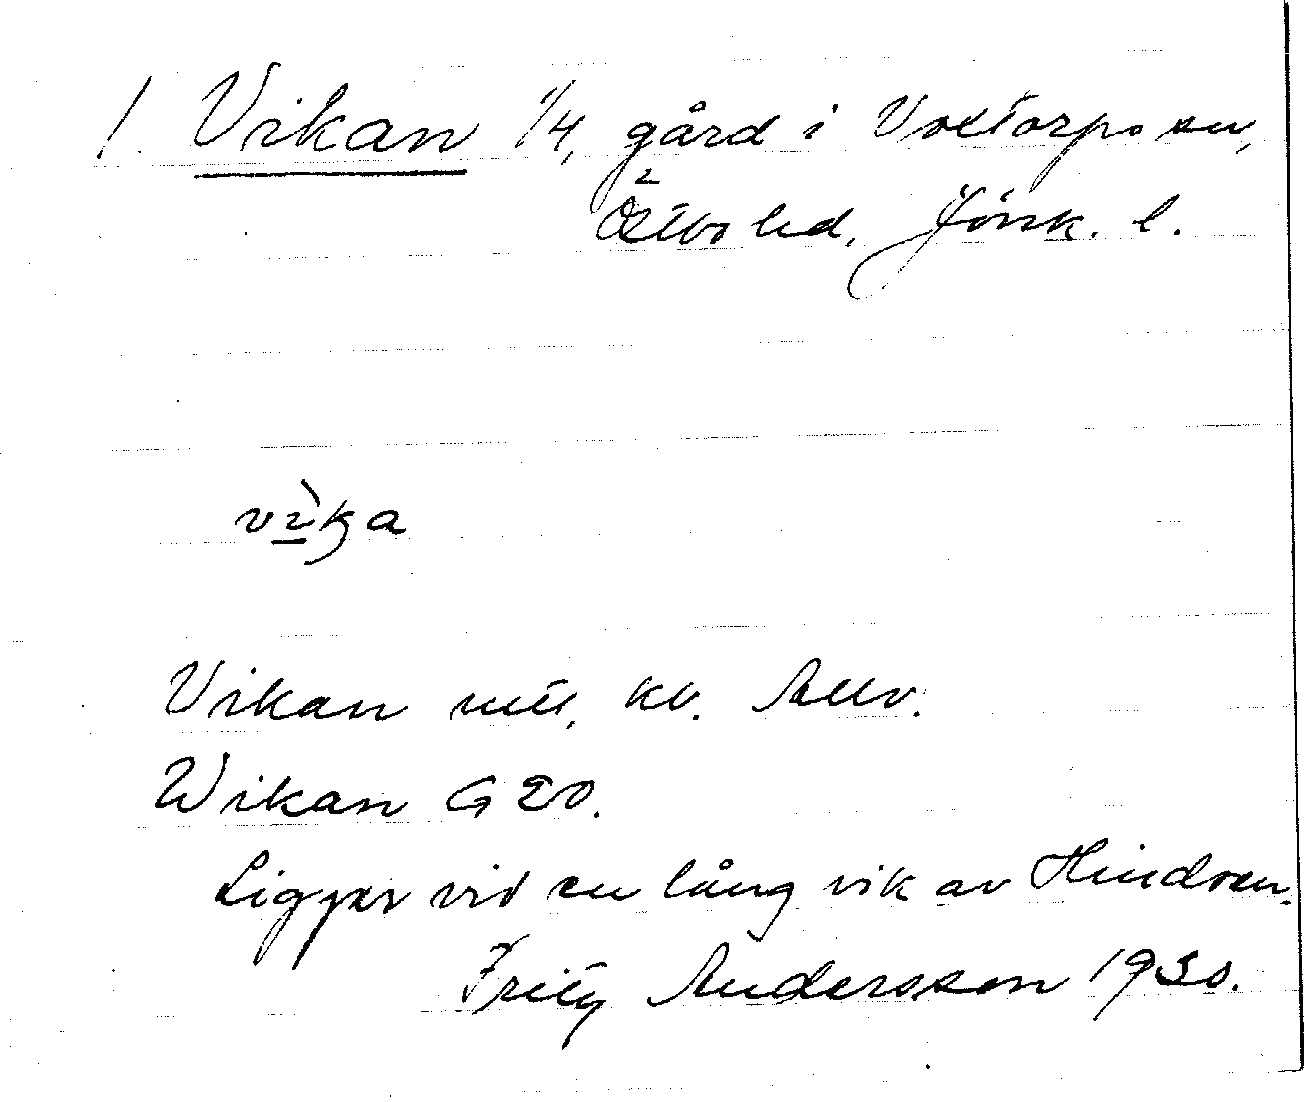 1. Vikan 1/4, gård i Voxtorps sn,
Östbo hd, Jönk. l.
vìka
Vikan utt. kv. Allv.
Wikan G 20.
Ligger vid en lång vik av Hindsen.
Fritz Andersson 1930.